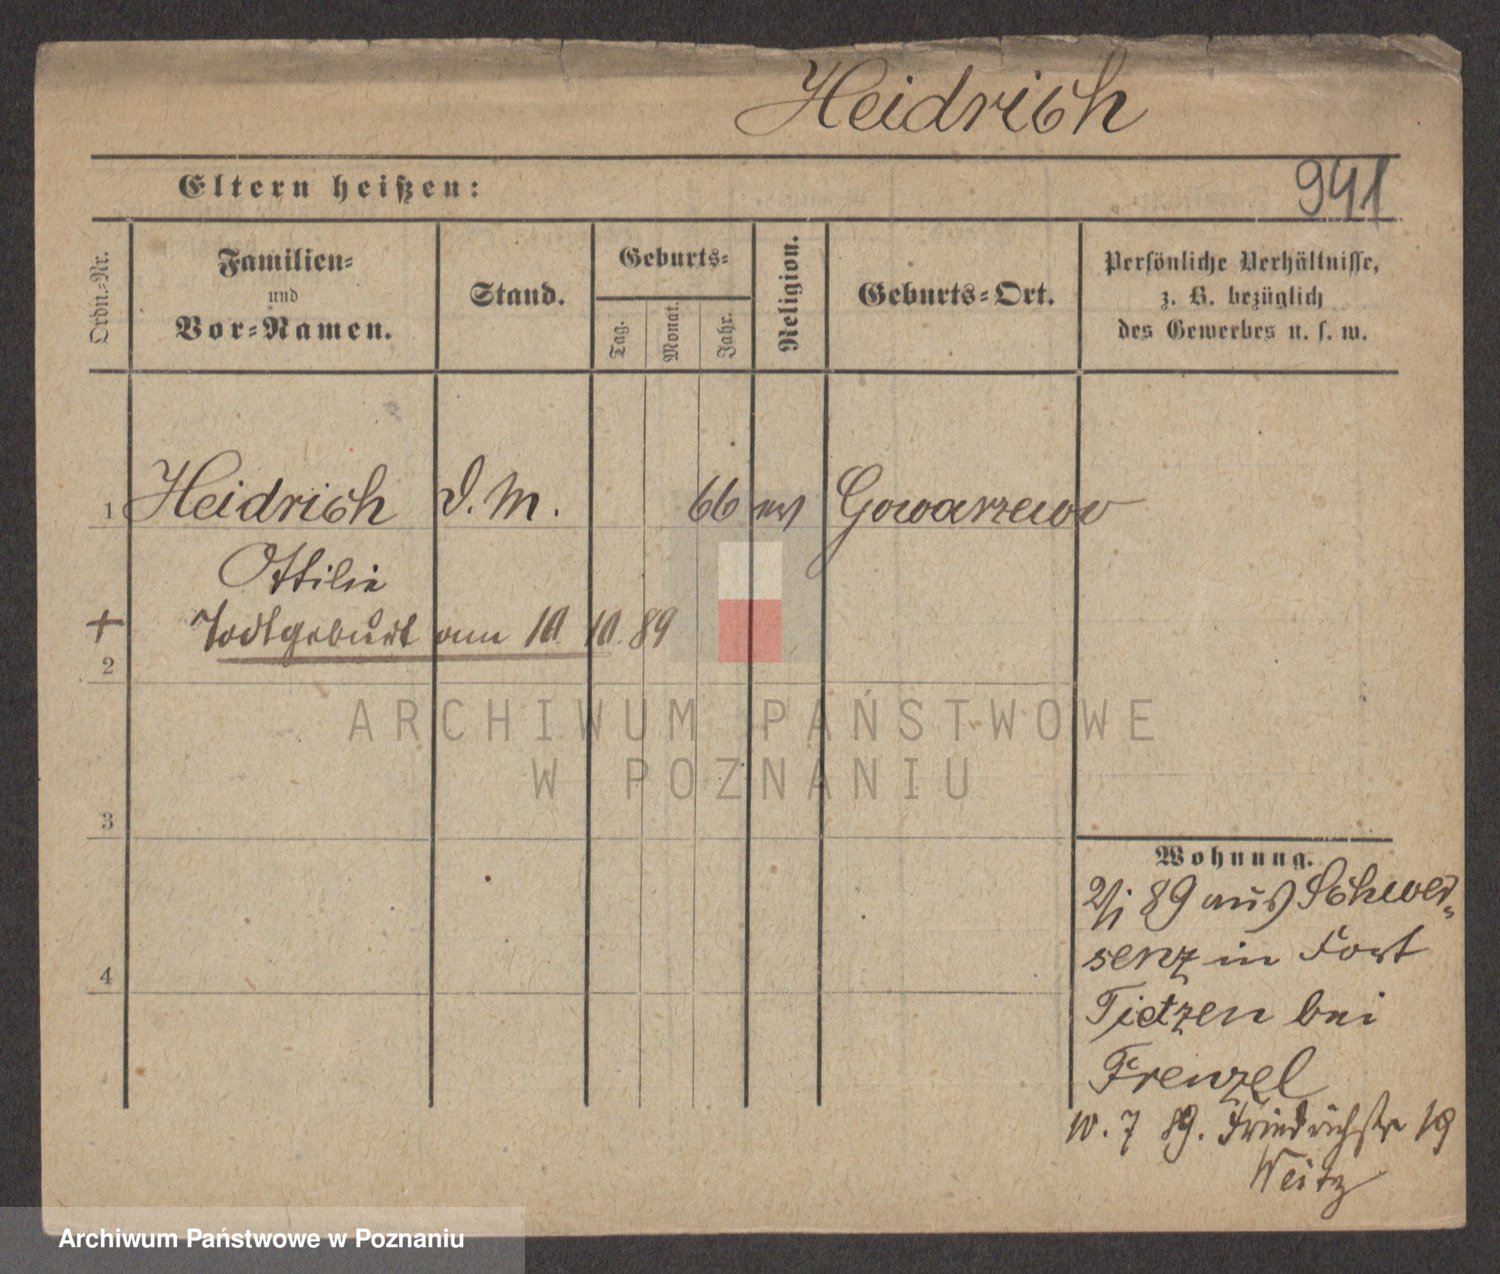 Heidrich
Eltern heißen:
941
Ordn.-Nr.
Familien-
und
Vor-Namen.
Stand.
Geburts-
Tag.
Monat.
Jahr.
Religion.
Geburts-Ort.
Persönliche Verhältnisse,
z. B. bezüglich
des Gewerbes u. s. w.
1 Heidrich D. M. 66 ev Gowarzewo
Ottilie
+ Todtgeburt am 10 10. 89
2
ARCHIWUM PAŃSTWOWE
W POZNANIU
3
Wohnung.
89 aus Schwer-
senz in Fort
4
Tietzen bei
Frenzel
10. 7 89. Friedrichstr 19
Weitz
Archiwum Państwowe w Poznaniu